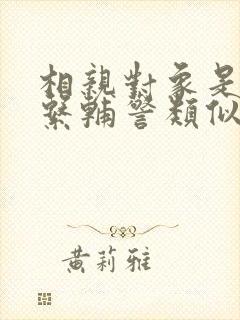 相親對象是
緊輔警類似
黃莉雅